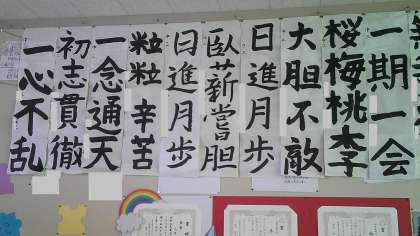 一期一会
桜梅桃李
大胆不敵
日進月歩
臥薪嘗胆
日進月歩
粒粒辛苦
一念通天
初志貫徹
一心不乱